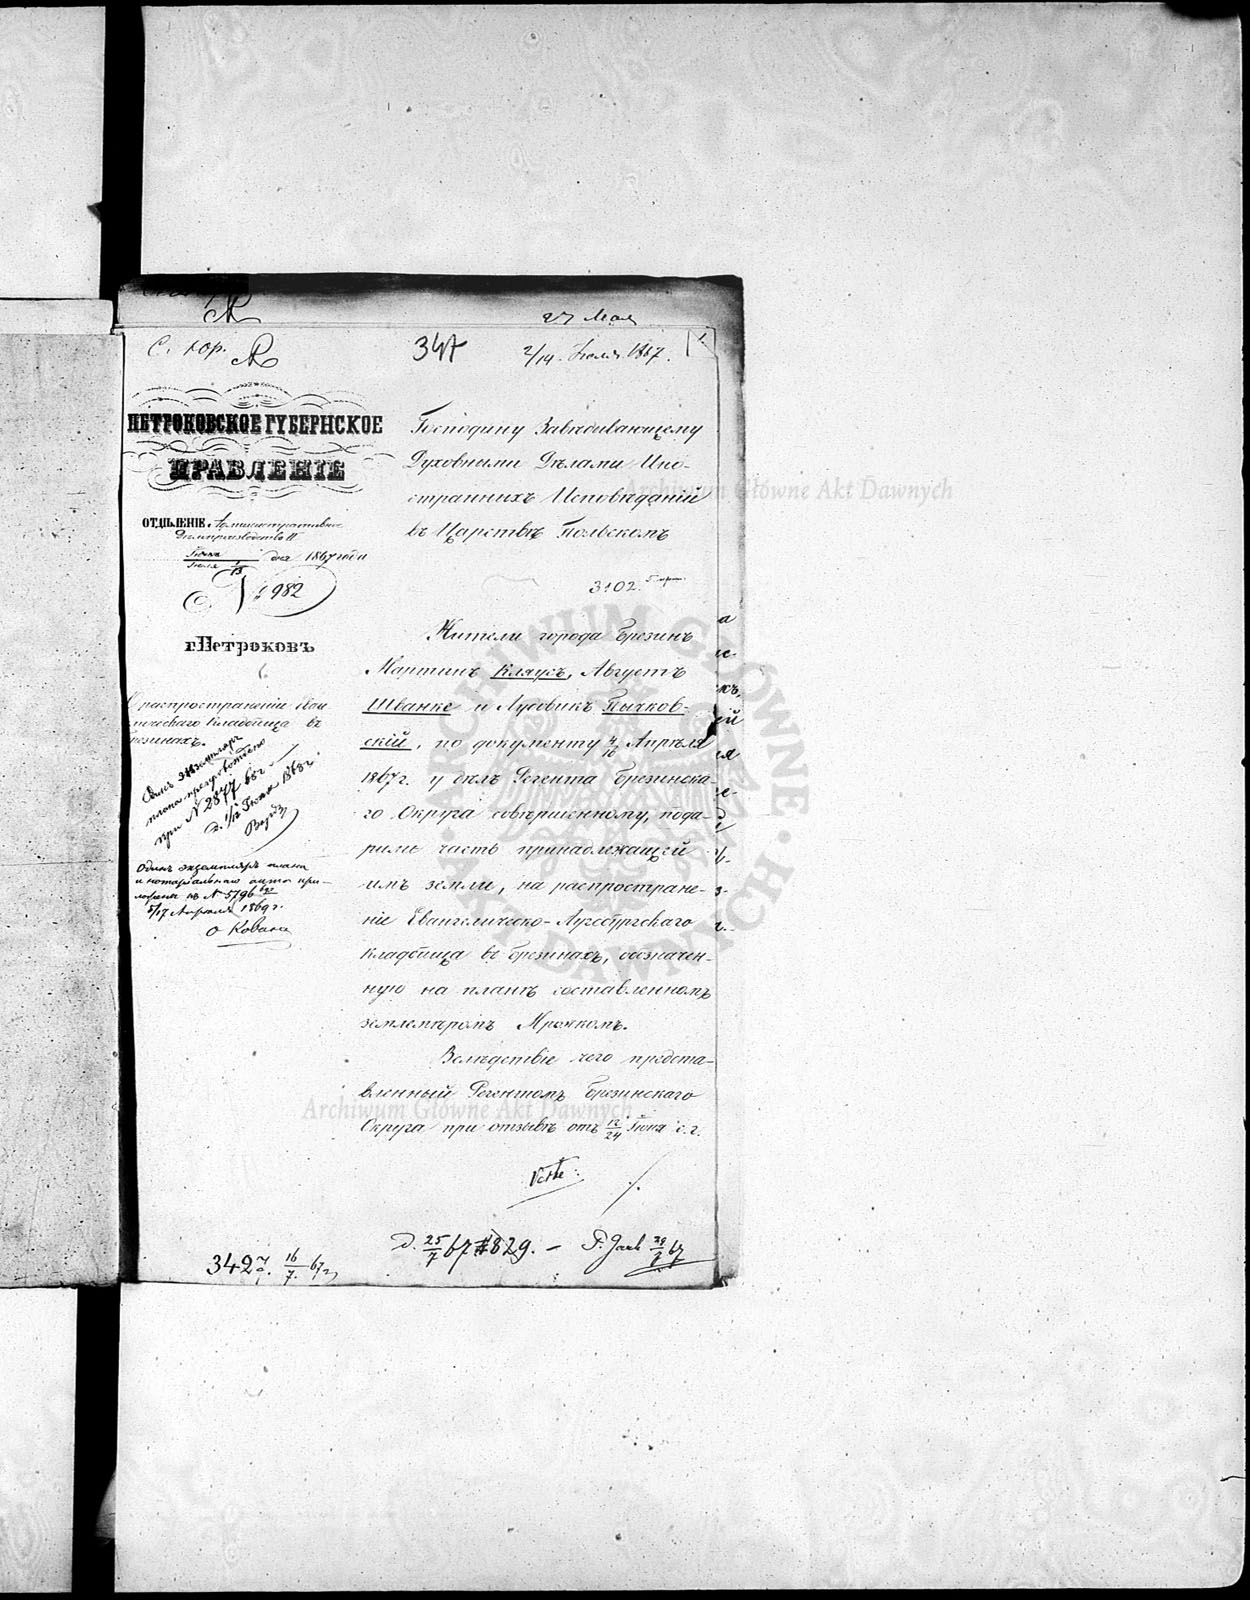 27 Мая
С. кор.
347
2/14 Июля 1867.
1
ПЕТРОКОВСКОЕ ГУБЕРНСКОЕ
ПРАВЛЕНІЕ
ОТДѢЛЕНІЕ Административное
Дѣлопроизводство II
Іюня
Іюля 1/13 дня 1867 года
№ 6982
г. Петроковъ
О распространеніи Еван
гелическаго Кладбища въ
Брезинахъ.
Одинъ экземпляръ
плана препровождено
при № 2877 68 г
д. 1/12 Іюня 1868 г
Одинъ экземпляръ плана
и нотаріальнаго акта при-
ложены къ № 5796
5/17 Апрѣля 1869 г.
Господину Завѣдывающему
Духовными Дѣлами Ино-
странныхъ Исповѣданій
въ Царствѣ Польскомъ
3102.
Жители города Брезинъ
Мартинъ Клаусъ, Августъ
Шванке и Лудвикъ Пычков-
скій, по документу 4/16 Апрѣля
1867 г. у дѣлъ Регента Брезинска-
го Округа совершенному, пода-
рили часть принадлежащей
имъ земли, на распростране-
ніе Евангелическо-Аугсбургскаго
Кладбища въ Брезинахъ, обозначен-
ную на планѣ составленномъ
землемѣромъ Мрочкомъ.
Вслѣдствіе чего предста-
вленный Регентомъ Брезинскаго
Округа при отзывѣ отъ 12/24 Іюня с. г.
./.
д. 25/7 67 #829. –
3427. 16/7. 67 г
Archiwum Główne Akt Dawnych
Archiwum Główne Akt Dawnych
ARCHIWUM GŁÓWNE
AKT DAWNYCH